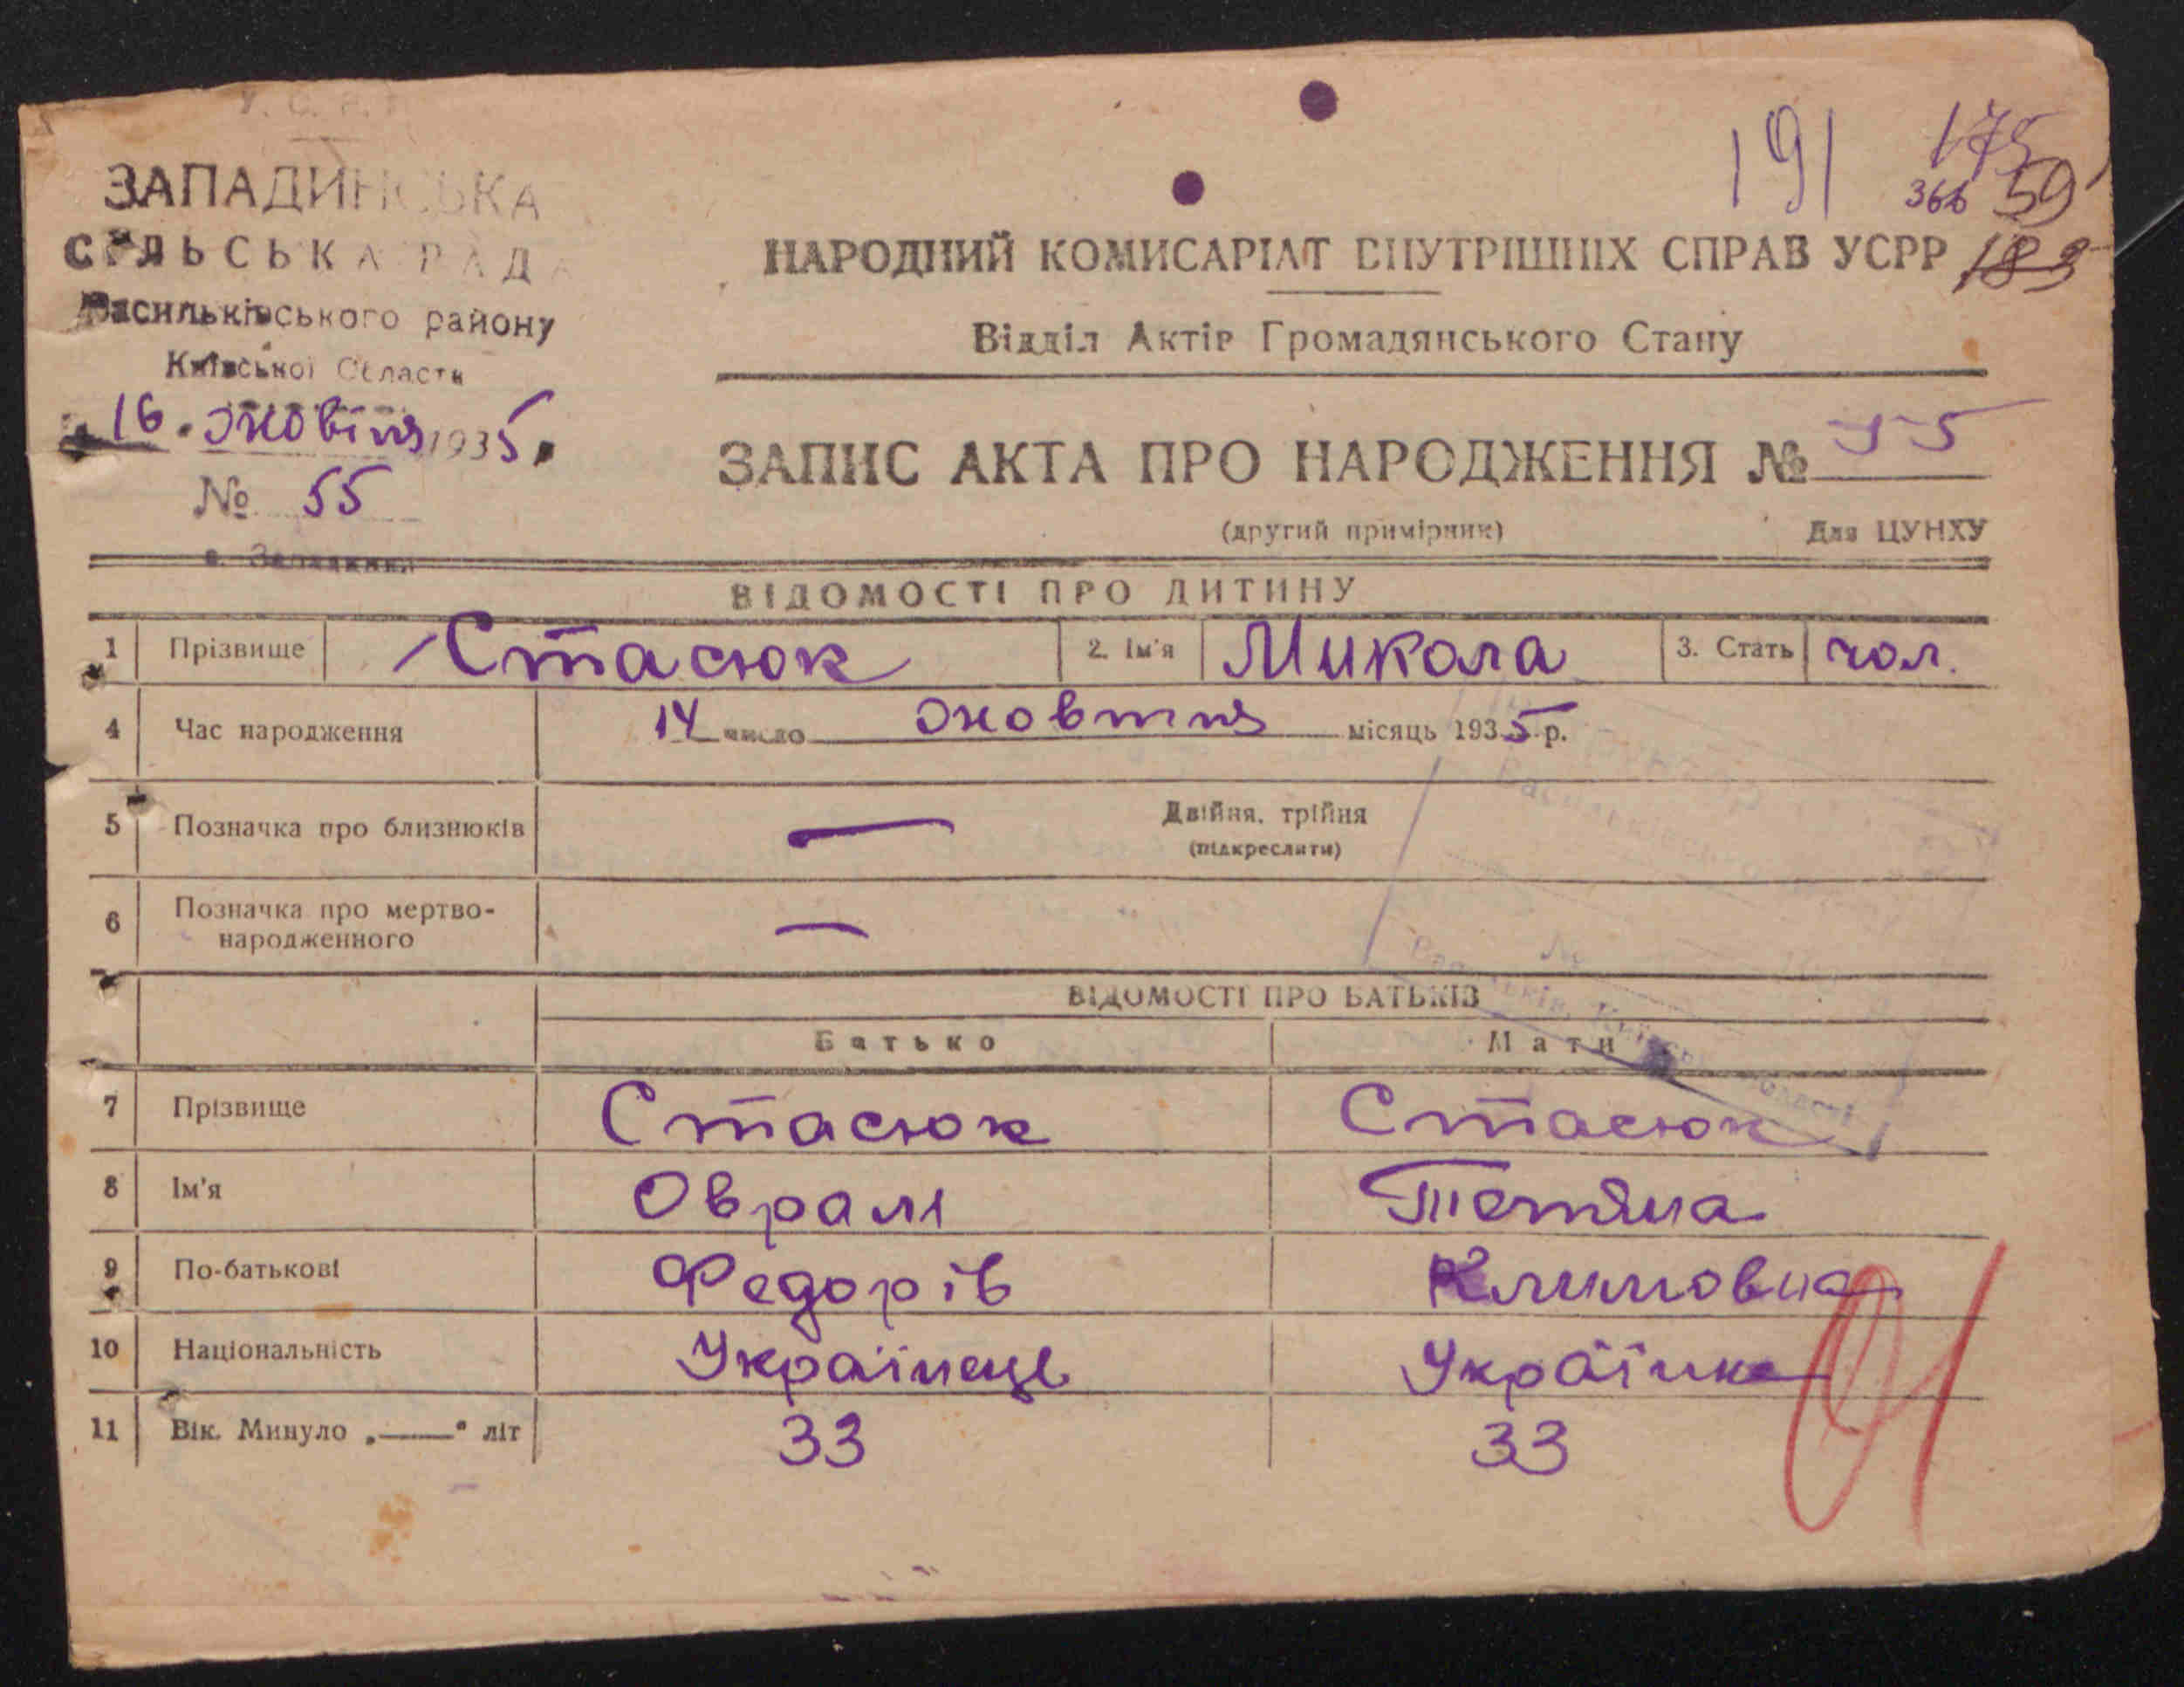 У. С. Р. Р.
ЗАПАДИНСЬКА
СІЛЬСЬКА РАДА
Васильківського району
Київської Области
16. жовтня 1935.
№ 55
с. Западинка
191
175
366 59
183
НАРОДНИЙ КОМИСАРІАТ ВНУТРІШНІХ СПРАВ УСРР
Відділ Актів Громадянського Стану
ЗАПИС АКТА ПРО НАРОДЖЕННЯ № 55
(другий примірник) Для ЦУНХУ
ВІДОМОСТІ ПРО ДИТИНУ
1 Прізвище Стасюк 2. Ім'я Микола 3. Стать чол.
4 Час народження 14 число жовтня місяць 1935 р.
5 Позначка про близнюків — Двійня, трійня
(підкреслити)
6 Позначка про мертво-
народженного —
ВІДОМОСТІ ПРО БАТЬКІВ
Батько Мати
7 Прізвище Стасюк Стасюк
8 Ім'я Оврам Тетяна
9 По-батькові Федорів Климовна
10 Національність Українець Українка
11 Вік. Минуло „——" літ 33 33
01